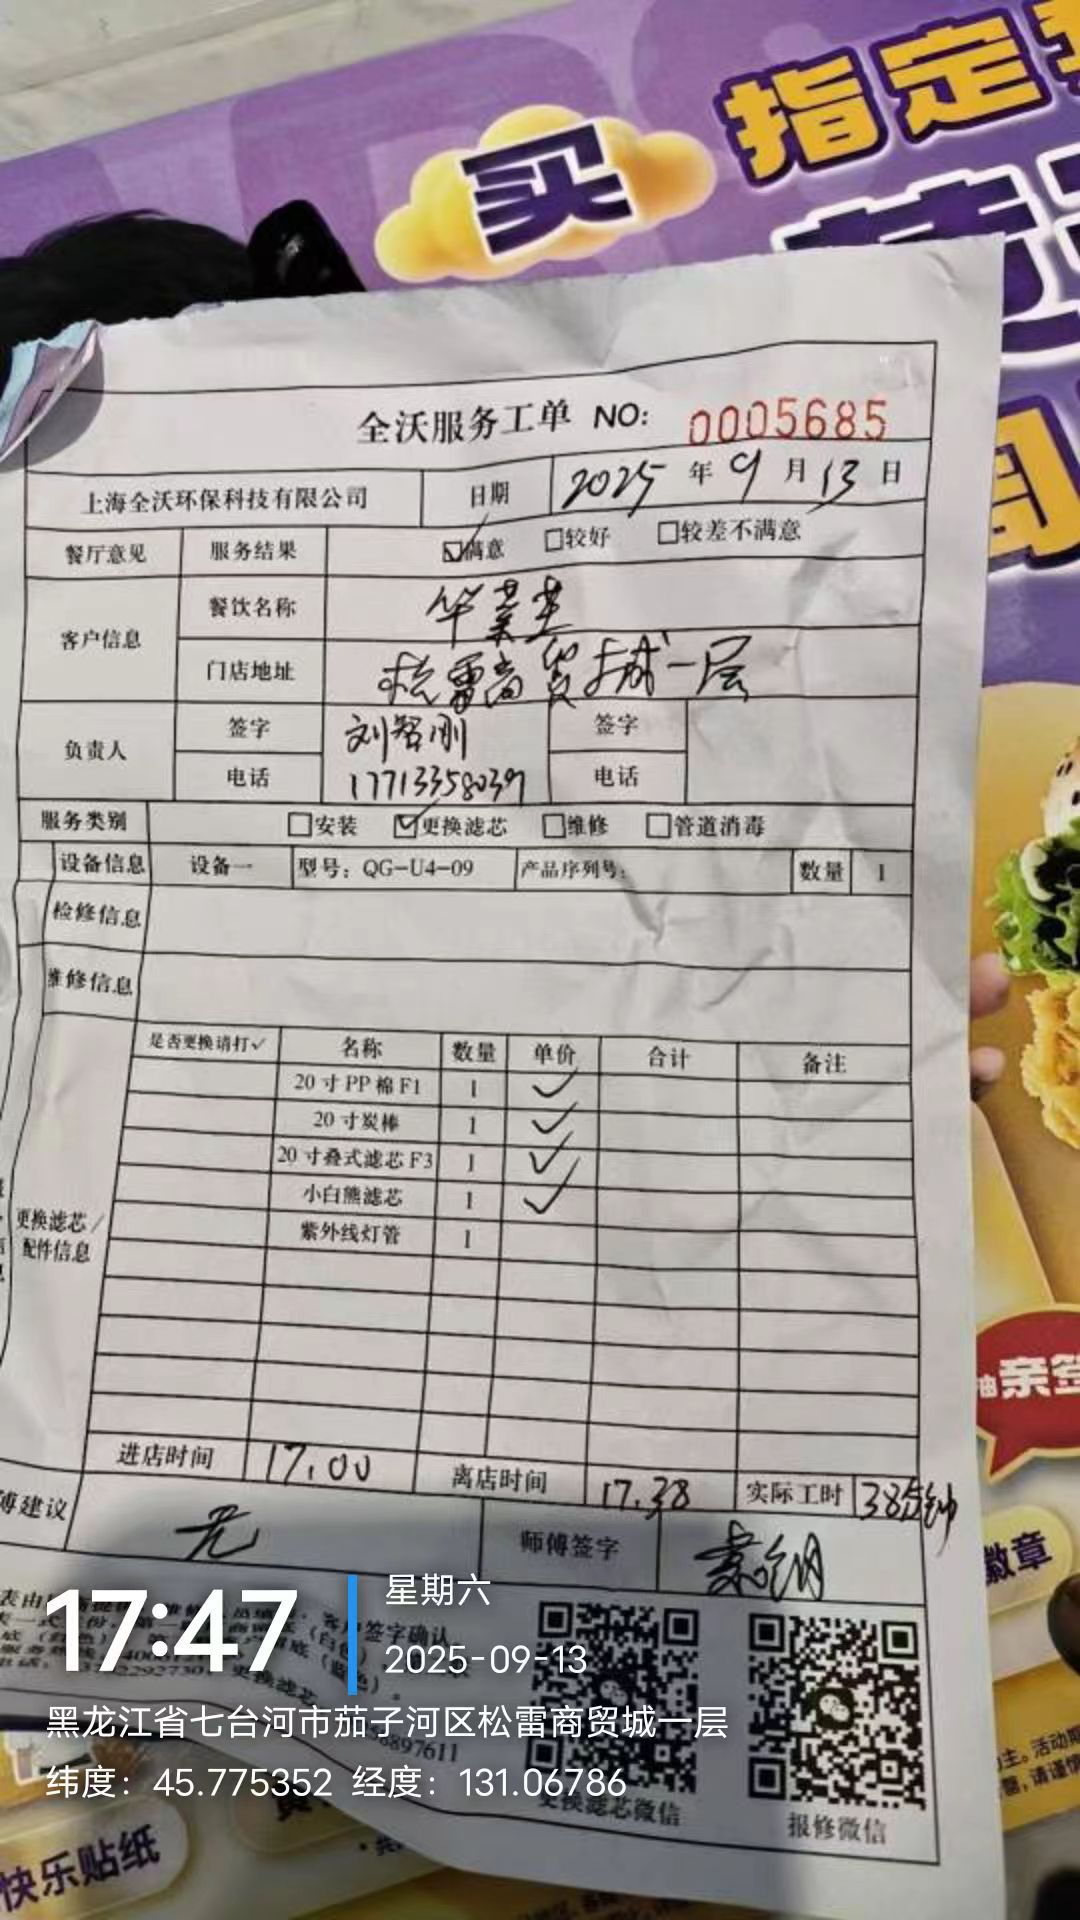 买 指定
全沃服务工单 NO: 0005685
上海全沃环保科技有限公司 日期 2025 年 9 月 13 日
餐厅意见 服务结果 ☑满意 □较好 □较差不满意
客户信息 餐饮名称 华莱士
门店地址 松雷商贸城一层
负责人 签字 刘智刚 签字
电话 17713358039 电话
服务类别 □安装 ☑更换滤芯 □维修 □管道消毒
设备信息 设备一 型号：QG-U4-09 产品序列号： 数量 1
检修信息
维修信息
是否更换请打✓ 名称 数量 单价 合计 备注
20寸PP棉F1 1 ✓
20寸炭棒 1 ✓
20寸叠式滤芯F3 1 ✓
小白熊滤芯 1 ✓
紫外线灯管 1
更换滤芯/
配件信息
进店时间 17.00 离店时间 17.38 实际工时 38分钟
傅建议 无 师傅签字
徽章
17:47 星期六
2025-09-13
黑龙江省七台河市茄子河区松雷商贸城一层
纬度：45.775352 经度：131.06786
更换滤芯微信 报修微信
快乐贴纸